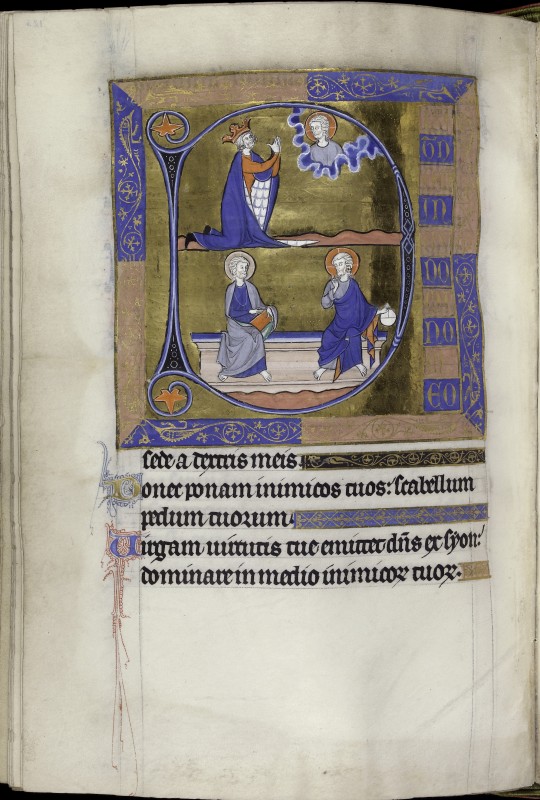 NO
EO
sede a dextris meis.
Donec ponam inimicos tuos: scabellum
pedum tuorum.
Uirgam uirtutis tue emittet dn̄s ex syon:
dominare in medio inimicoꝝ tuoꝝ.